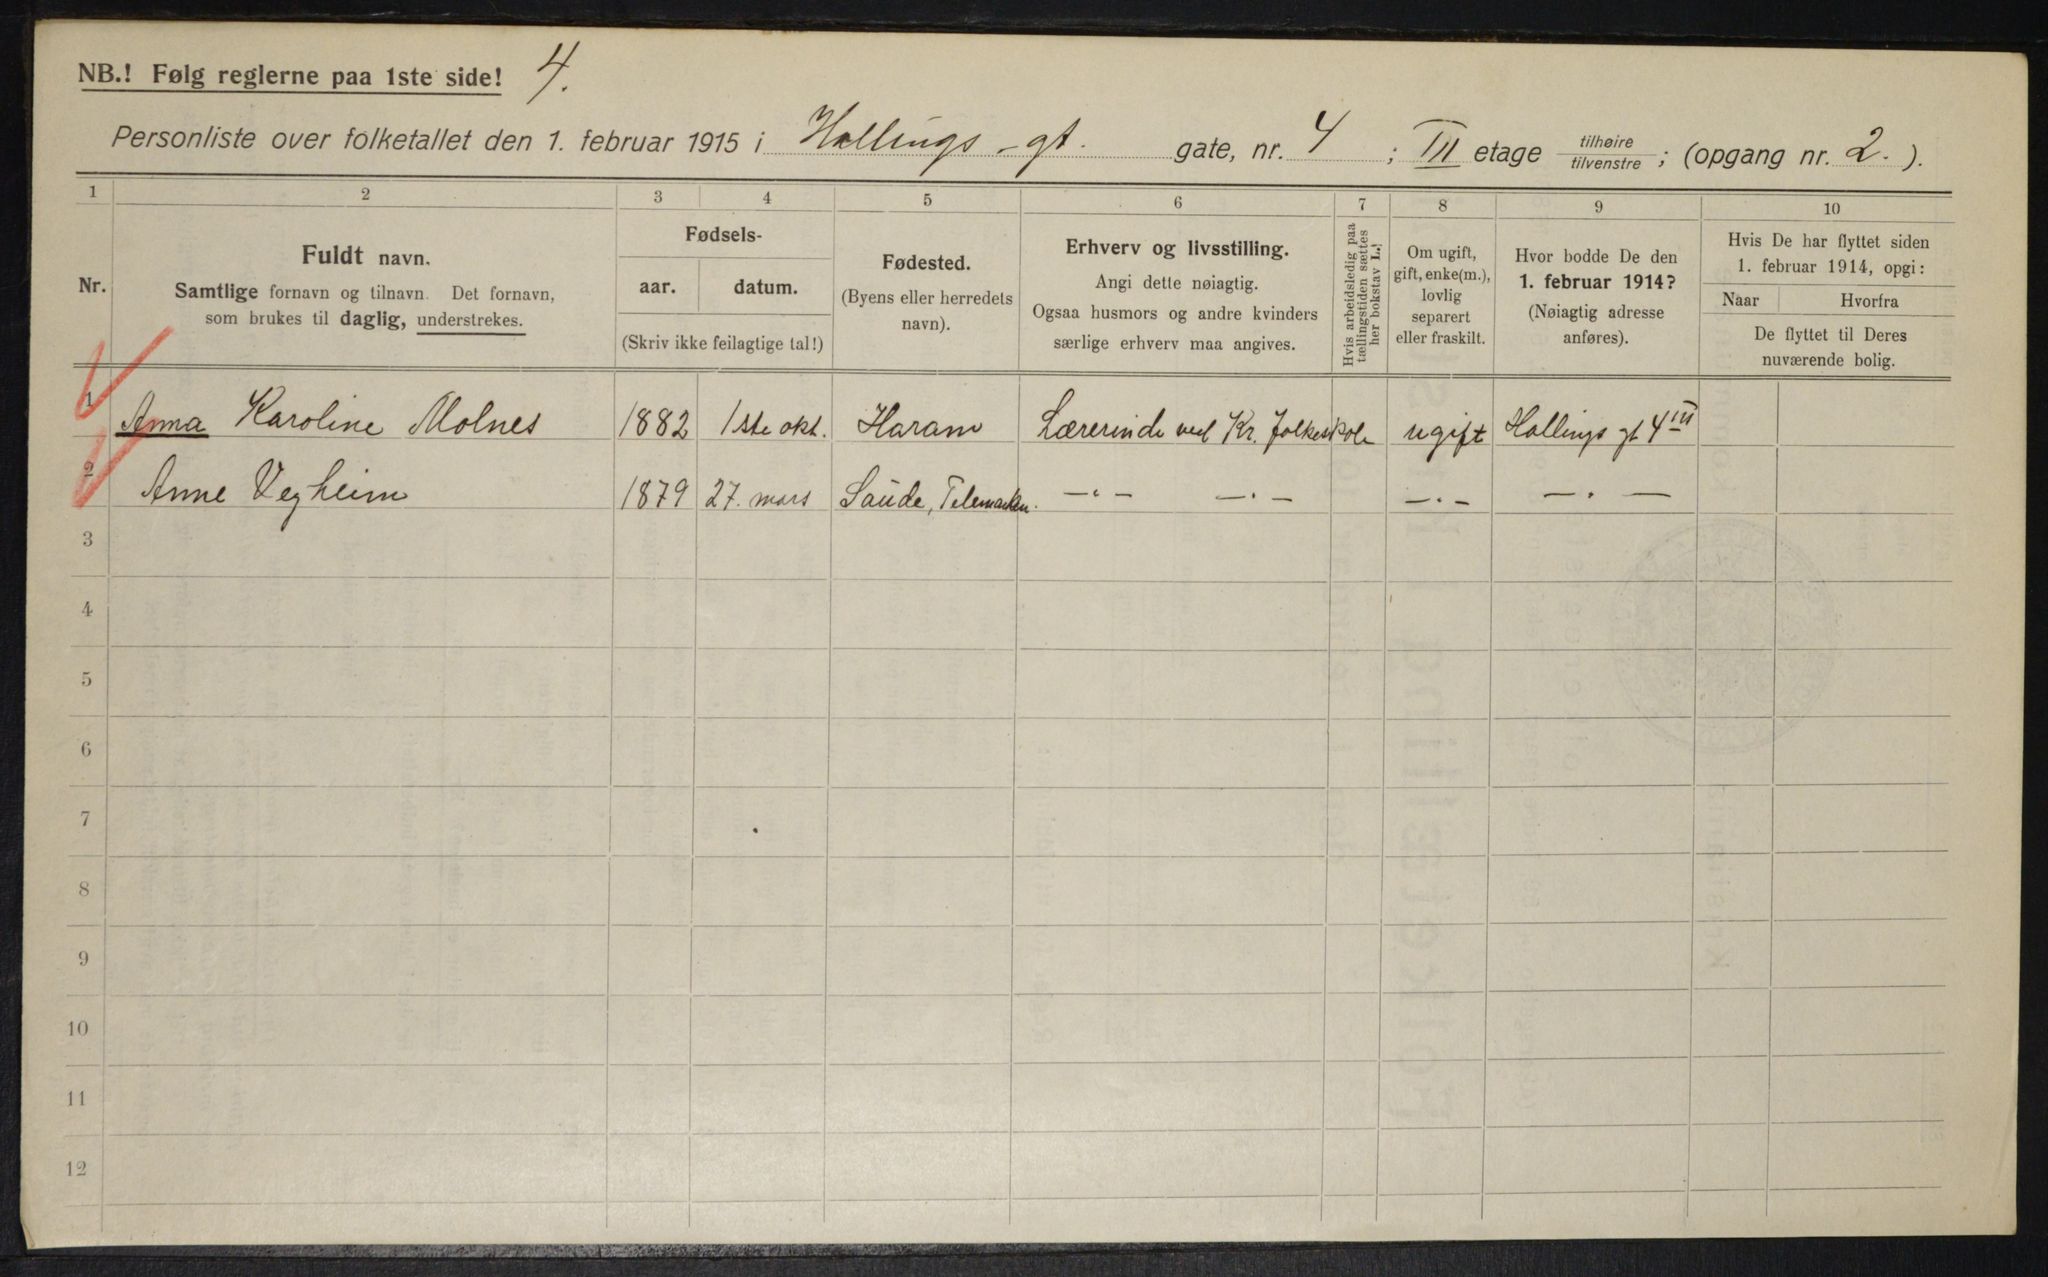 NB.! Følg reglerne paa 1ste side! 4.
Personliste over folketallet den 1. februar 1915 i Hallings-gt. gate, nr. 4 ; III etage tilhøire / tilvenstre ; (opgang nr. 2. ).
1 2 3 4 5 6 7 8 9 10
Nr.
Fuldt navn.
Samtlige fornavn og tilnavn. Det fornavn,
som brukes til daglig, understrekes.
Fødsels-
aar. datum.
(Skriv ikke feilagtige tal!)
Fødested.
(Byens eller herredets
navn).
Erhverv og livsstilling.
Angi dette nøiagtig.
Ogsaa husmors og andre kvinders
særlige erhverv maa angives.
Hvis arbeidsledig paa
tællingstiden sættes
her bokstav L.!
Om ugift,
gift, enke(m.),
lovlig
separert
eller fraskilt.
Hvor bodde De den
1. februar 1914?
(Nøiagtig adresse
anføres).
Hvis De har flyttet siden
1. februar 1914, opgi:
Naar Hvorfra
De flyttet til Deres
nuværende bolig.
1 Anna Karoline Molnes 1882 1ste okt. Haram Lærerinde ved Kr. folkeskole ugift Hallings gt 4 III
2 Anne Vegheim 1879 27. mars Saude, Telemarken. —〃— —〃— —〃— —〃—
3
4
5
6
7
8
9
10
11
12